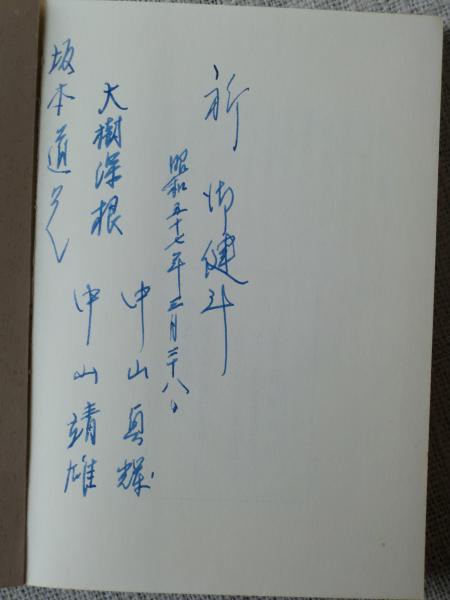 祈 御健斗
昭和五十七年三月二十八日
大樹深根
中山 輝
中山靖雄
坂本道